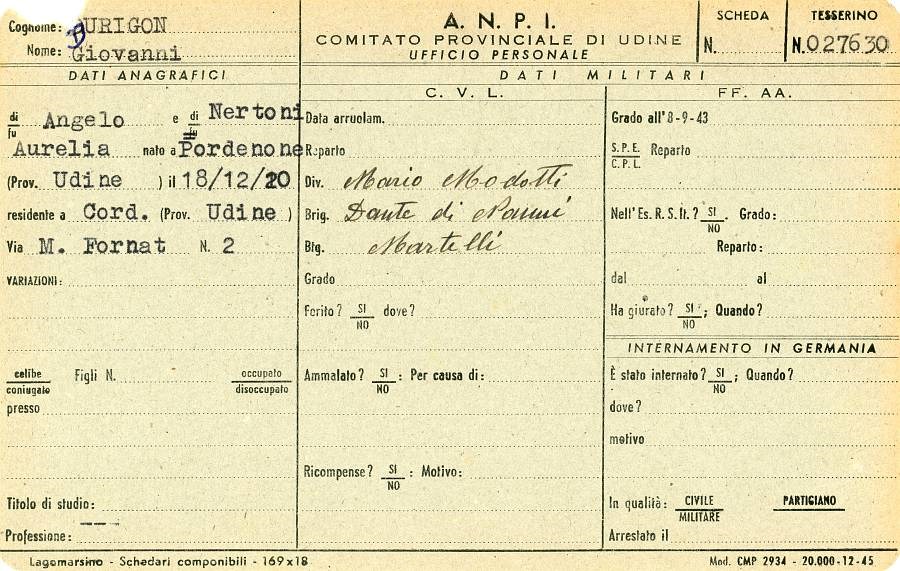 Cognome: BURIGON
Nome: Giovanni
A. N. P. I.
COMITATO PROVINCIALE DI UDINE
UFFICIO PERSONALE
SCHEDA
N.
TESSERINO
N. 027630
DATI ANAGRAFICI
di
fu Angelo e di
fu Nertoni
Aurelia nato a Pordenone
(Prov. Udine ) il 18/12/20
residente a Cord. (Prov. Udine )
Via M. Fornat N. 2
VARIAZIONI:
celibe
coniugato Figli N. occupato
disoccupato
presso
Titolo di studio:
Professione:
DATI MILITARI
C. V. L.
Data arruolam.
Reparto
Div. Mario Modotti
Brig. Dante di Nanni
Btg. Martelli
Grado
Ferito? SI
NO dove?
Ammalato? SI
NO : Per causa di:
Ricompense? SI
NO : Motivo:
FF. AA.
Grado all'8-9-43
S. P. E.
C. P. L. Reparto
Nell'Es. R. S. It.? SI
NO . Grado:
Reparto:
dal al
Ha giurato? SI
NO ; Quando?
INTERNAMENTO IN GERMANIA
È stato internato? SI
NO ; Quando?
dove?
motivo
In qualità: CIVILE
MILITARE PARTIGIANO
Arrestato il
Lagomarsino - Schedari componibili - 169x18
Mod. CMP 2934 - 20.000-12-45